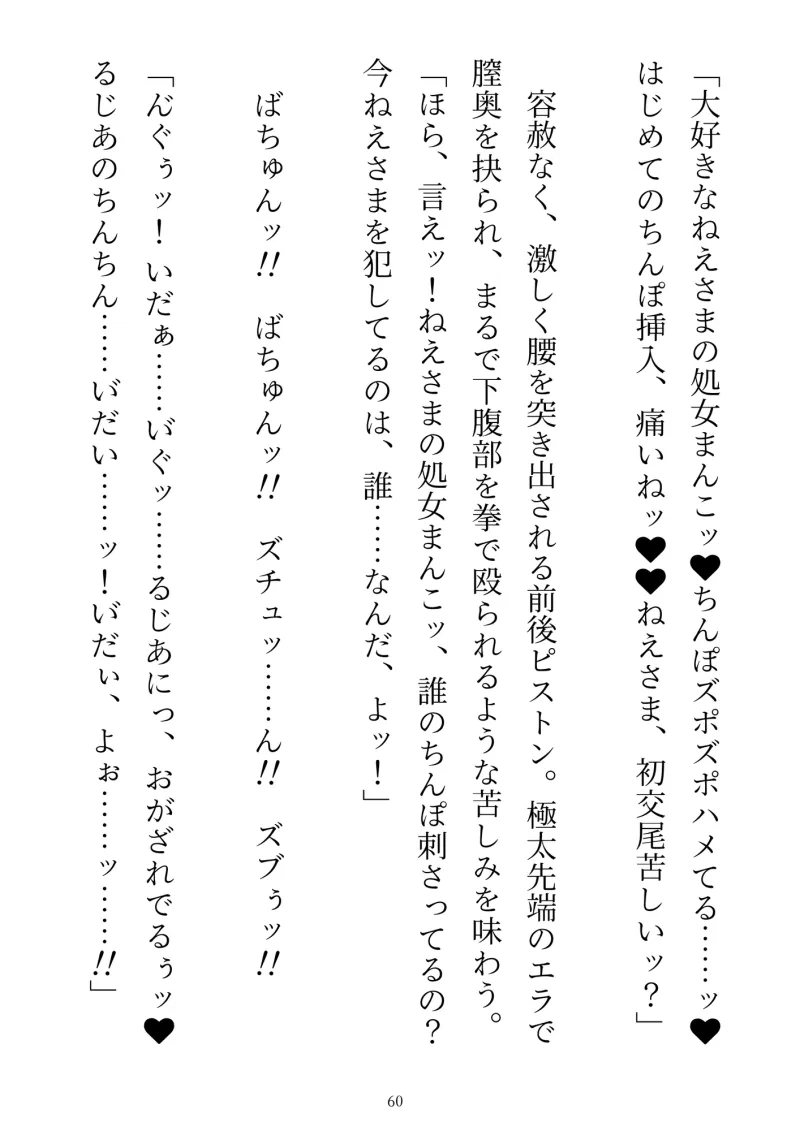 「大好きなねえさまの処女まんこッ♥ちんぽズポズポハメてる……ッ♥
はじめてのちんぽ挿入、痛いねッ♥♥ねえさま、初交尾苦しいッ？」
容赦なく、激しく腰を突き出される前後ピストン。極太先端のエラで
膣奥を抉られ、まるで下腹部を拳で殴られるような苦しみを味わう。
「ほら、言えッ！ねえさまの処女まんこッ、誰のちんぽ刺さってるの？
今ねえさまを犯してるのは、誰……なんだ、よッ！」
ばちゅんッ!!　ばちゅんッ!!　ズチュッ……ん!!　ズブぅッ!!
「ん゙ぐぅッ！いだぁ……い゙ぐッ……るじあにっ、おがざれでるぅッ♥
るじあのちんちん……い゙だい……ッ！い゙だぃ、よぉ……ッ……!!」
60